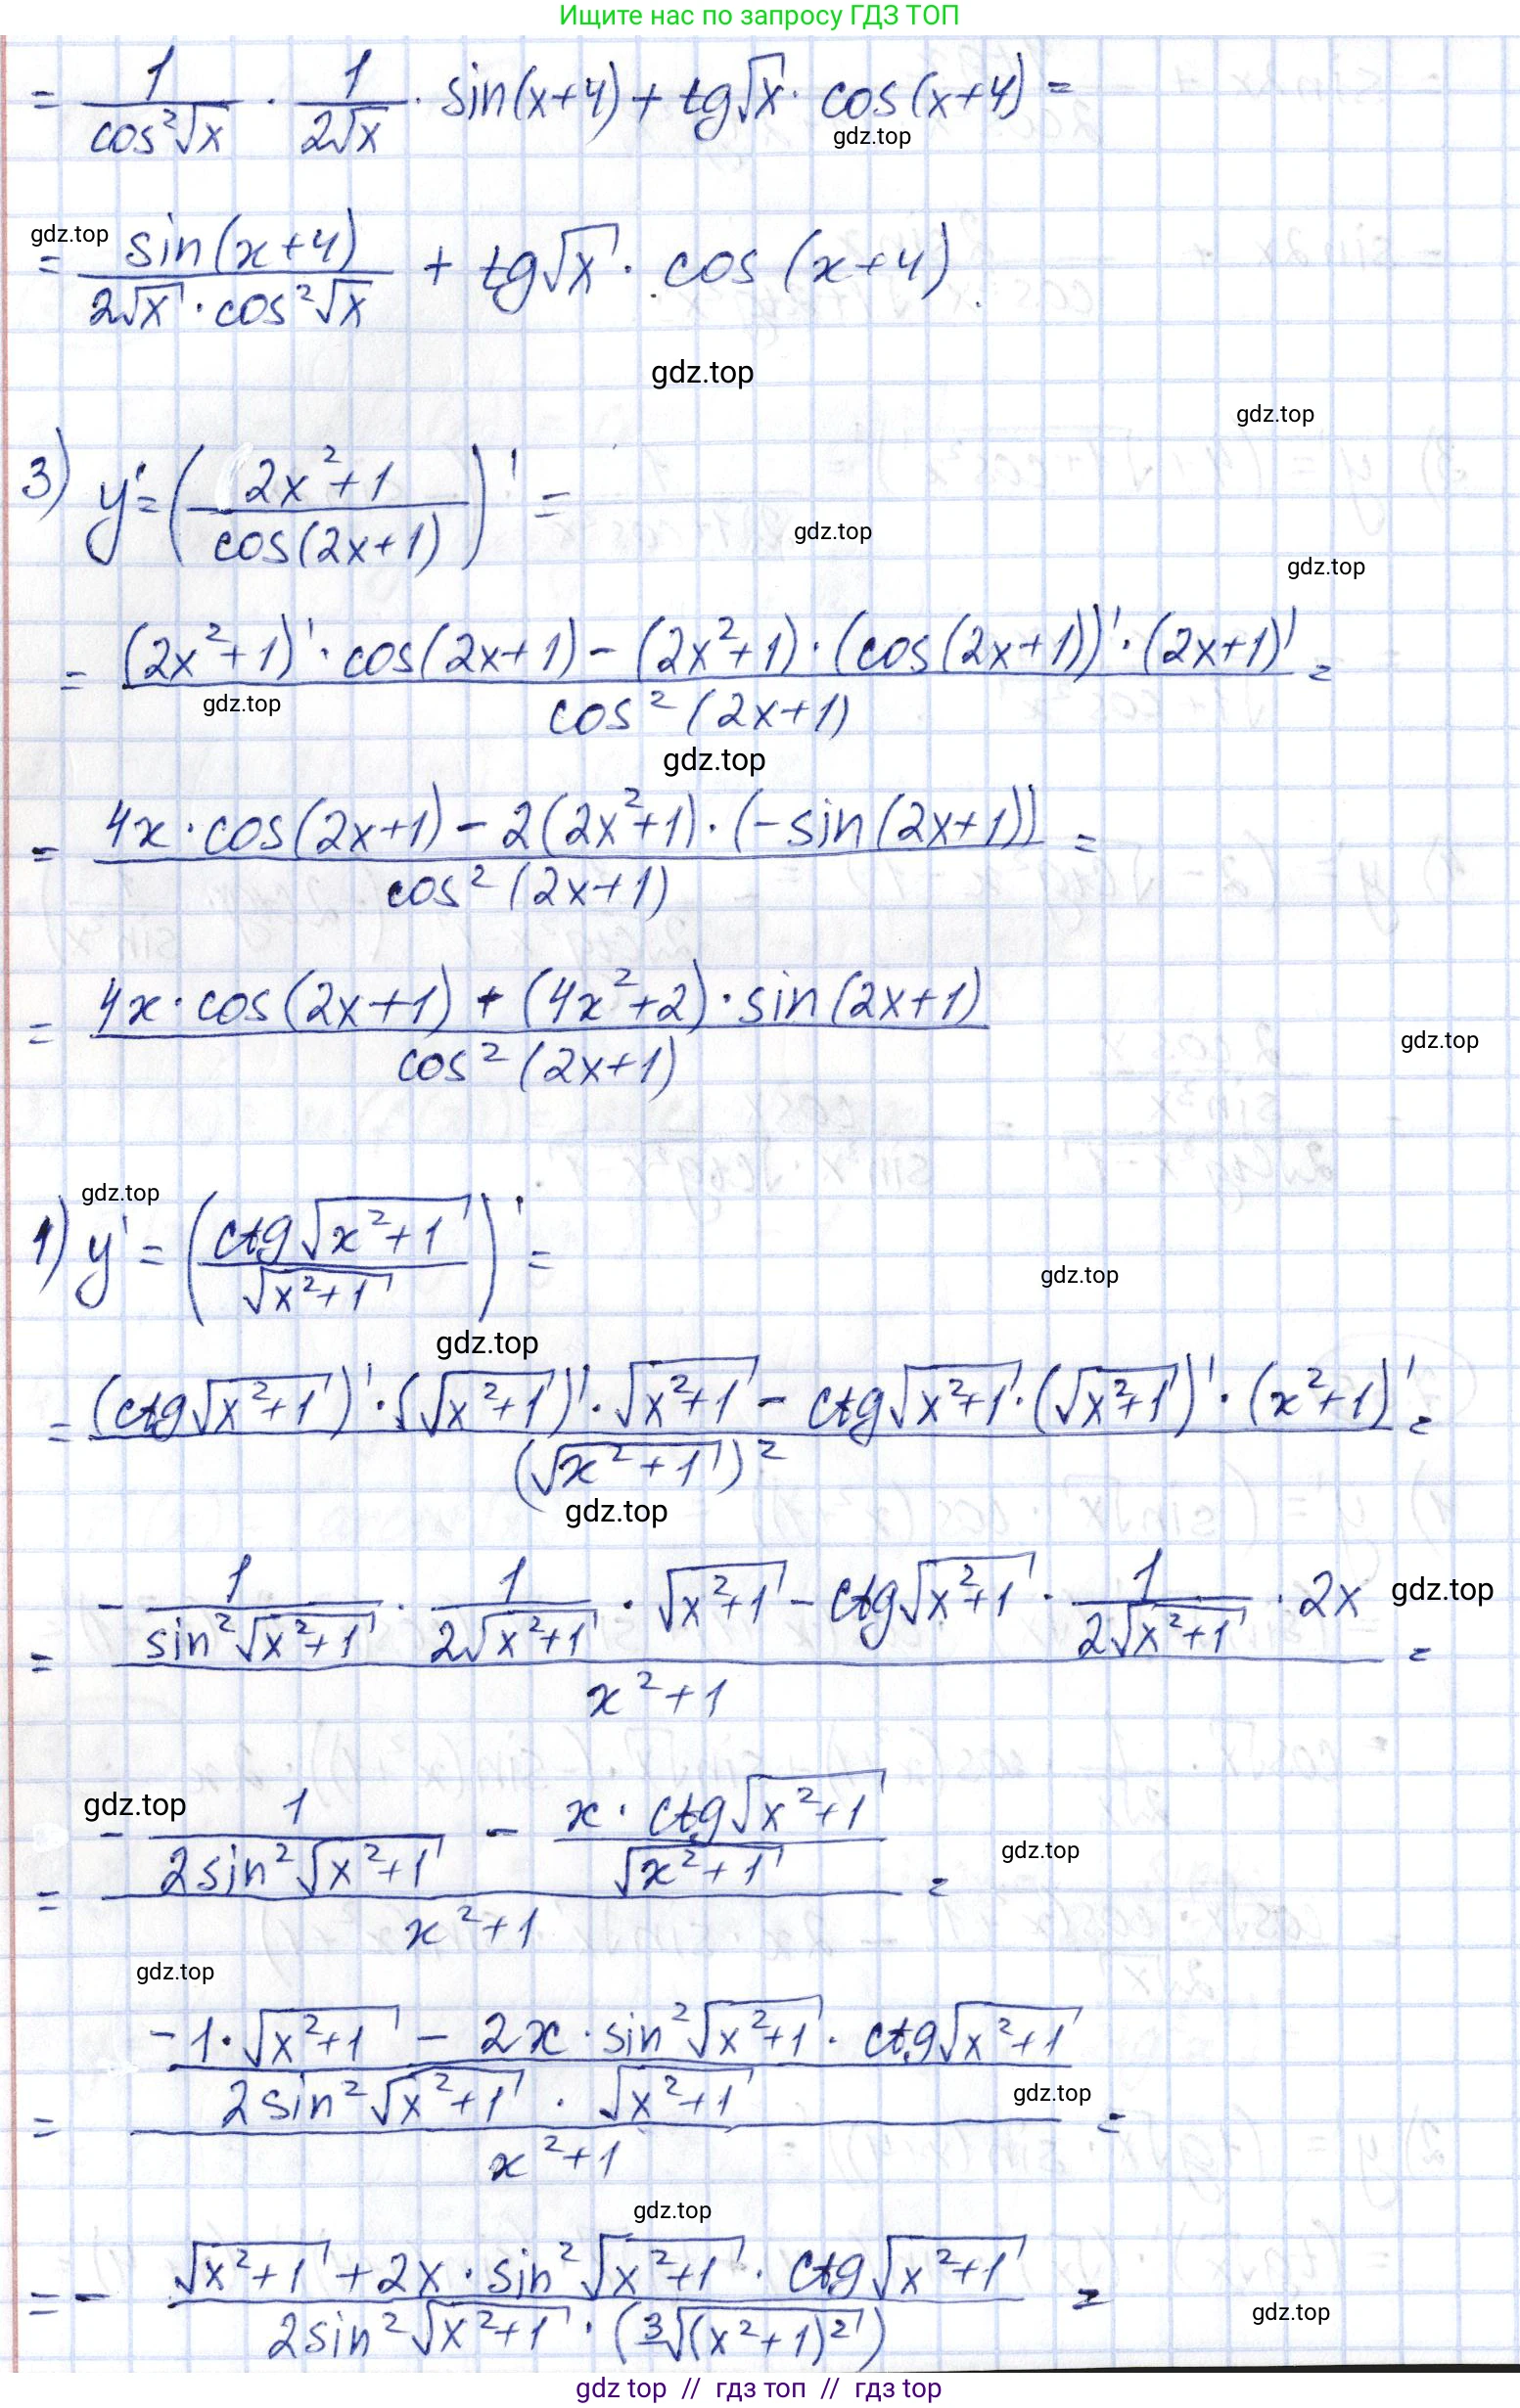 Ищите нас по запросу ГДЗ ТОП
= 1/cos²√x · 1/2√x · sin(x+4) + tg√x · cos(x+4) =
gdz.top
gdz.top
= sin(x+4)/2√x · cos²√x + tg√x · cos(x+4).
gdz.top
gdz.top
3) y' = (2x²+1/cos(2x+1))' =
gdz.top
gdz.top
= (2x²+1)' · cos(2x+1) - (2x²+1) · (cos(2x+1))' · (2x+1)'/cos²(2x+1) =
gdz.top
gdz.top
= 4x · cos(2x+1) - 2(2x²+1) · (-sin(2x+1))/cos²(2x+1) =
= 4x · cos(2x+1) + (4x²+2) · sin(2x+1)/cos²(2x+1)
gdz.top
gdz.top
1) y' = (ctg√x²+1/√x²+1)' =
gdz.top
gdz.top
= (ctg√x²+1)' · (√x²+1)' · √x²+1 - ctg√x²+1 · (√x²+1)' · (x²+1)'/(√x²+1)² =
gdz.top
= -1/sin²√x²+1 · 1/2√x²+1 · √x²+1 - ctg√x²+1 · 1/2√x²+1 · 2x/x²+1 =
gdz.top
gdz.top
= -1/2sin²√x²+1 - x · ctg√x²+1/√x²+1/x²+1 =
gdz.top
gdz.top
= -1 · √x²+1 - 2x · sin²√x²+1 · ctg√x²+1/2sin²√x²+1 · √x²+1/x²+1 =
gdz.top
gdz.top
= - √x²+1 + 2x · sin²√x²+1 · ctg√x²+1/2sin²√x²+1 · (³√(x²+1)²) =
gdz.top
gdz top // гдз топ // гдз top